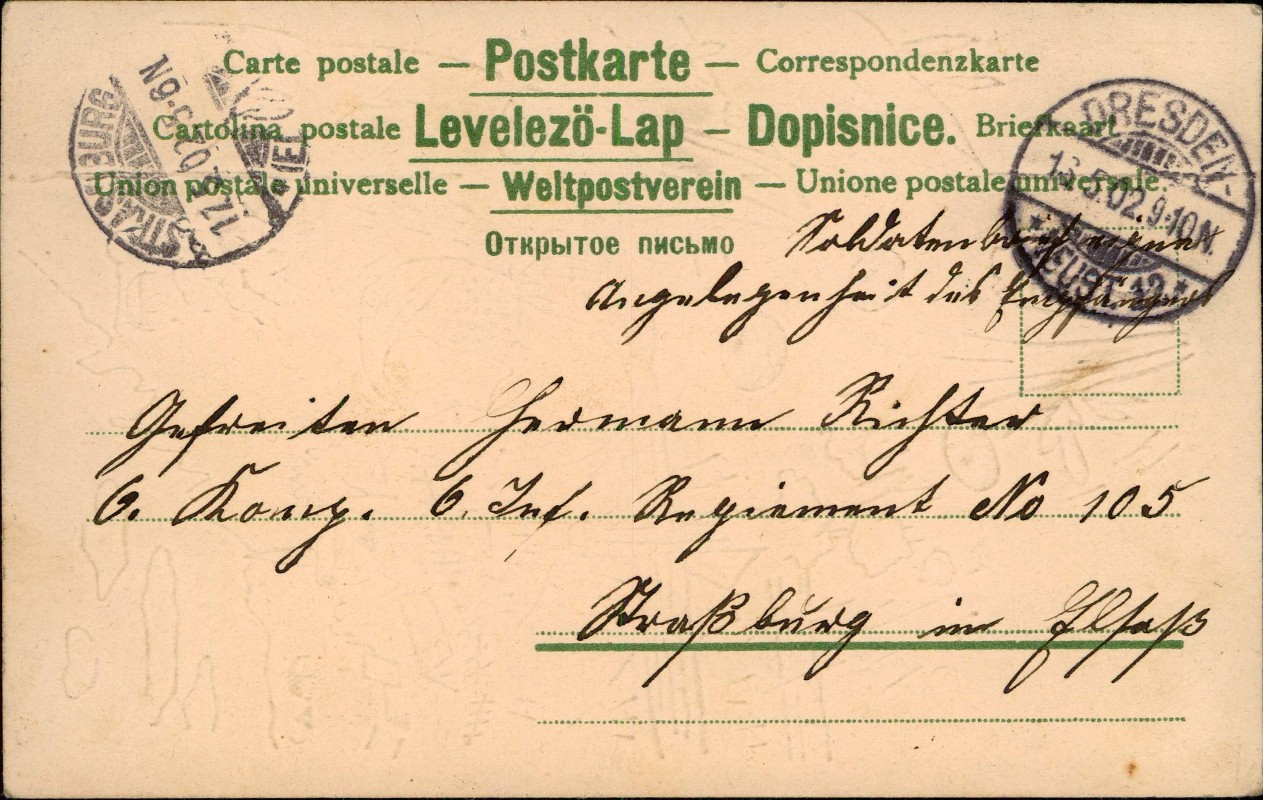 Carte postale — Postkarte — Correspondenzkarte
Cartolina postale Levelezö-Lap — Dopisnice. Briefkaart
Union postale universelle — Weltpostverein — Unione postale universale.
Открытое письмо
STRASSBURG
17.5.02.5-6N
DRESDEN-
16.5.02.9-10N.
* NEUST. 12 *
Soldatenbrief eigene
Angelegenheit des Empfängers
Gefreiten Hermann Richter
6. Komp. 6. Inf. Regiement No 105
Straßburg im Elsaß